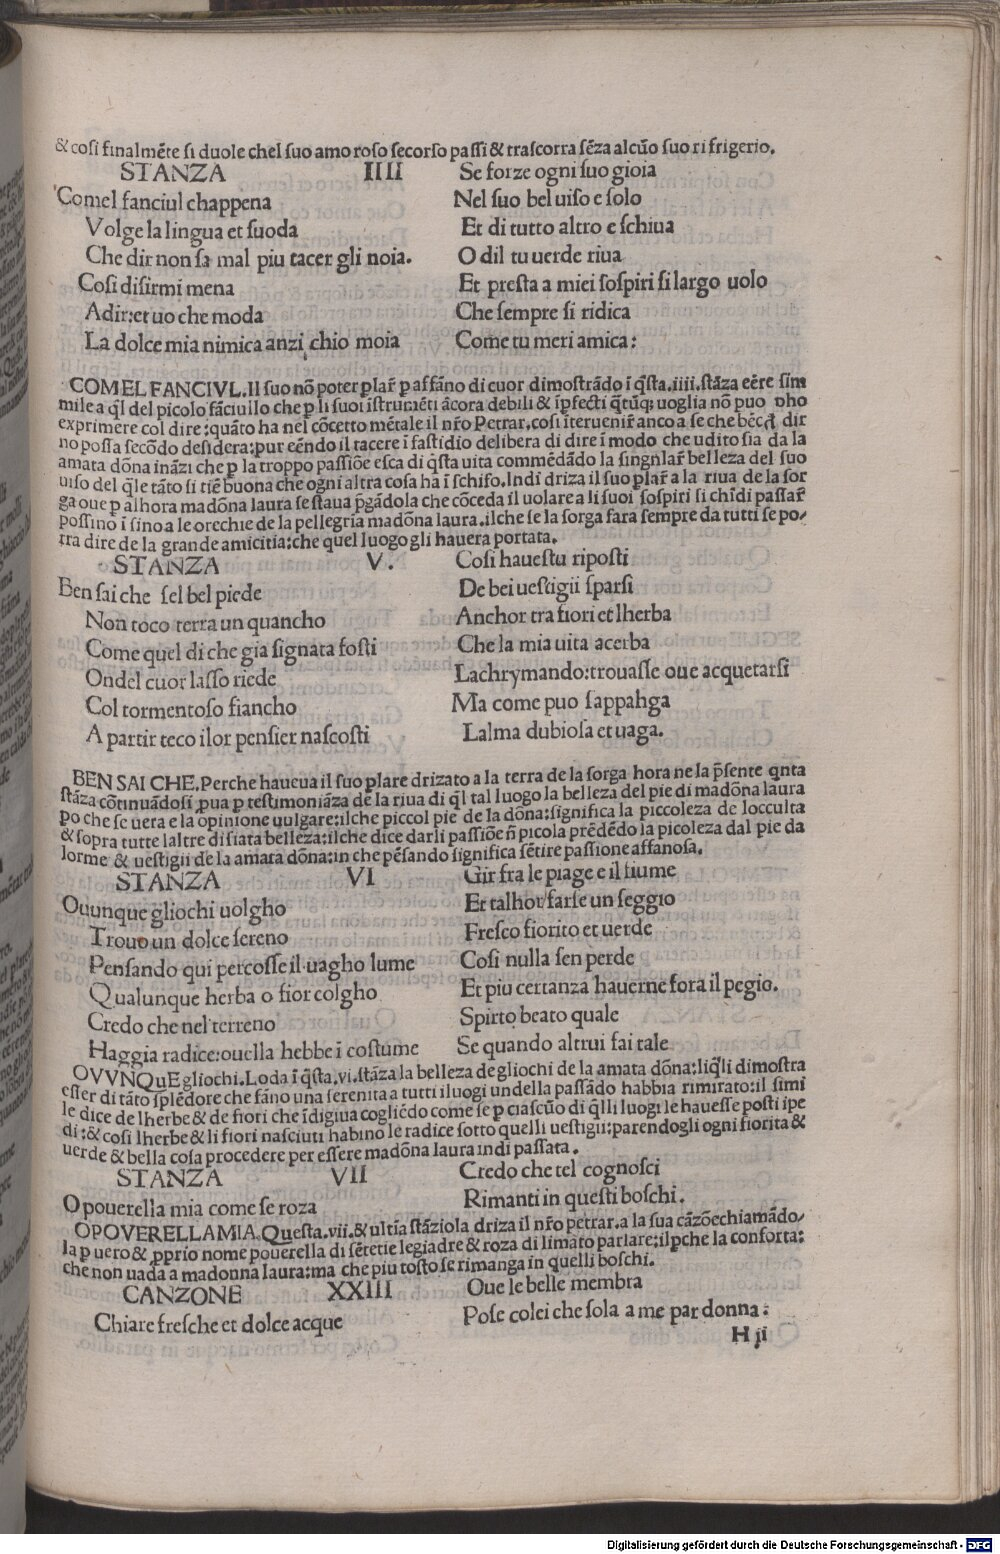 & cosi finalmēte si duole chel suo amoroso secorso passi & trascorra sēza alcūo suo rifrigerio.
STANZA IIII
Comel fanciul chappena
Volge la lingua et suoda
Che dir non sa mal piu tacer gli noia.
Cosi disirmi mena
A dir:et uo che moda
La dolce mia nimica anzi chio moia
Se forze ogni suo gioia
Nel suo bel uiso e solo
Et di tutto altro e schiua
O dil tu uerde riua
Et presta a miei sospiri si largo uolo
Che sempre si ridica
Come tu meri amica:
COMEL FANCIVL. Il suo nō poter plar̄ p affāno di cuor dimostrādo ī q̄sta.iiii.stāza eēre sim
mile a q̄l del picolo fāciullo che p li suoi īstrumēti ācora debili & īpfecti q̄tūq; uoglia nō puo
exprimere col dire:quāto ha nel cōcetto mētale il nr̄o Petrar.cosi īteruenir̄ anco a se che dir
no possa secōdo desidera:pur eēndo il tacere ī fastidio delibera di dire ī modo che udito sia da la
amata dōna ināzi che p la troppo passiōe esca di q̄sta uita commēdādo la singnlar̄ belleza del suo
uiso del q̄le tāto si tiē buona che ogni altra cosa ha ī schifo.Indi driza il suo plar̄ a la riua de la sor
ga oue p alhora madōna laura se staua p̄gādola che cōceda il uolare a li suoi sospiri si chīdi passar̄
possino ī sino a le orechie de la pellegria madōna laura.ilche se la sorga fara sempre da tutti se po-
tra dire de la grande amicitia:che quel luogo gli hauera portata.
STANZA V.
Ben sai che sel bel piede
Non toco terra un quancho
Come quel di che gia signata fosti
Ondel cuor lasso riede
Col tormentoso fiancho
A partir teco ilor pensier nascosti
Cosi hauestu riposti
De bei uestigii sparsi
Anchor tra fiori et lherba
Che la mia uita acerba
Lachrymando:trouasse oue acquetarsi
Ma come puo sappahga
Lalma dubiosa et uaga.
BEN SAI CHE. Perche haueua il suo plare drizato a la terra de la sorga hora ne la p̄sente qnta
stāza cōtinuādosi pua p testimoniāza de la riua di q̄l tal luogo la belleza del pie di madōna laura
po che se uera e la opinione uulgare:ilche piccol pie de la dōna:significa la piccoleza de locculta
& sopra tutte laltre disiata belleza:ilche dice darli passiōe n̄ picola prēdēdo la picoleza dal pie da
lorme & uestigii de la amata dōna:in che pēsando significa sētire passione affanosa.
STANZA VI
Ouunque gliochi uolgho
Trouo un dolce sereno
Pensando qui percosse il uagho lume
Qualunque herba o fior colgho
Credo che nel terreno
Haggia radice:ouella hebbe ī costume
Gir fra le piage e il fiume
Et talhor farse un seggio
Fresco fiorito et uerde
Cosi nulla sen perde
Et piu certanza hauerne fora il pegio.
Spirto beato quale
Se quando altrui fai tale
OVVNQuE gliochi. Loda ī q̄sta.vi.stāza la belleza de gliochi de la amata dōna:liq̄li dimostra
esser di tāto splēdore che fāno una serenita a tutti i luogi undella passādo habbia rimirato:il simi
le dice de lherbe & de fiori che īdigiua cogliēdo come se p ciascūo di q̄lli luogi le hauesse posti ipe
di:& cosi lherbe & li fiori nasciuti habino le radice sotto quelli uestigii:parendogli ogni fiorita &
uerde & bella cosa procedere per essere madōna laura indi passata.
STANZA VII
O pouerella mia come se roza
Credo che tel cognosci
Rimanti in questi boschi.
O POVERELLA MIA. Questa.vii.& ultīa stāziola driza il nr̄o petrar.a la sua cāzōe chiamādo-
la p uero & pprio nome pouerella di sētetie legiadre & roza di limato parlare:ilpche la conforta:
che non uada a madonna laura:ma che piu tosto se rimanga in quelli boschi.
CANZONE XXIII
Chiare fresche et dolce acque
Oue le belle membra
Pose colei che sola a me par donna:
H ii
Digitalisierung gefördert durch die Deutsche Forschungsgemeinschaft - DFG